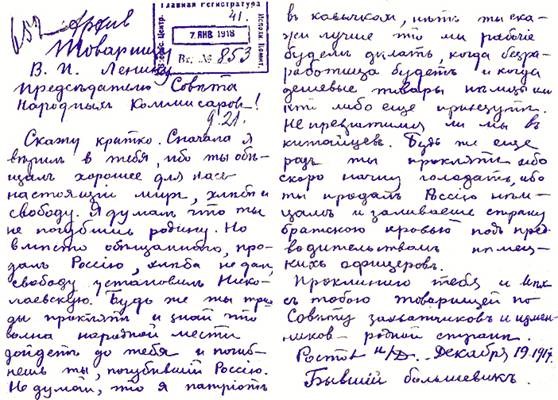 652 Архив
Главная регистратура
41.
7 ЯНВ 1918
Вх. № 853
Товарищу
В. И. Ленину
Председателю Совета
Народных Коммисаров!
9.21.
Скажу кратко. Сначала я
верил в тебя, ибо ты обе-
щал хорошее для нас
настоящий мир, хлеба и
свободу. Я думал что ты
не погубишь родину. Но
вместо обещанного, про-
дал Россию, хлеба не дал,
свободу установил Нико-
лаевскую. Будь же ты три-
ды проклят и знай что
волна народной мести
дойдет до тебя и погиб-
нешь ты, погубивший Россию.
Не думай, что я патриотъ
в кавычкам, нѣтъ ты ска-
жи лучше что мы рабочие
будем дѣлать, когда безра-
работица будетъ и когда
дешевые товары нѣмцы или
кто либо еще привезутъ.
Не превратимся ли мы в
китайцев. Будь же еще
раз ты проклятъ ибо
скоро начну голодать, ибо
ты продал Россию нѣм-
цам и заливаеше страну
братскою кровью подъ пред-
водительствам нѣмец-
кихъ офицеров.
Проклинаю тебя и всѣх
съ тобою товарищей по
Совѣту захватчиков и измен-
ников - родной страны.
Ростов н/Д. Декабря, 19. 1917.
Бывший большевикъ.